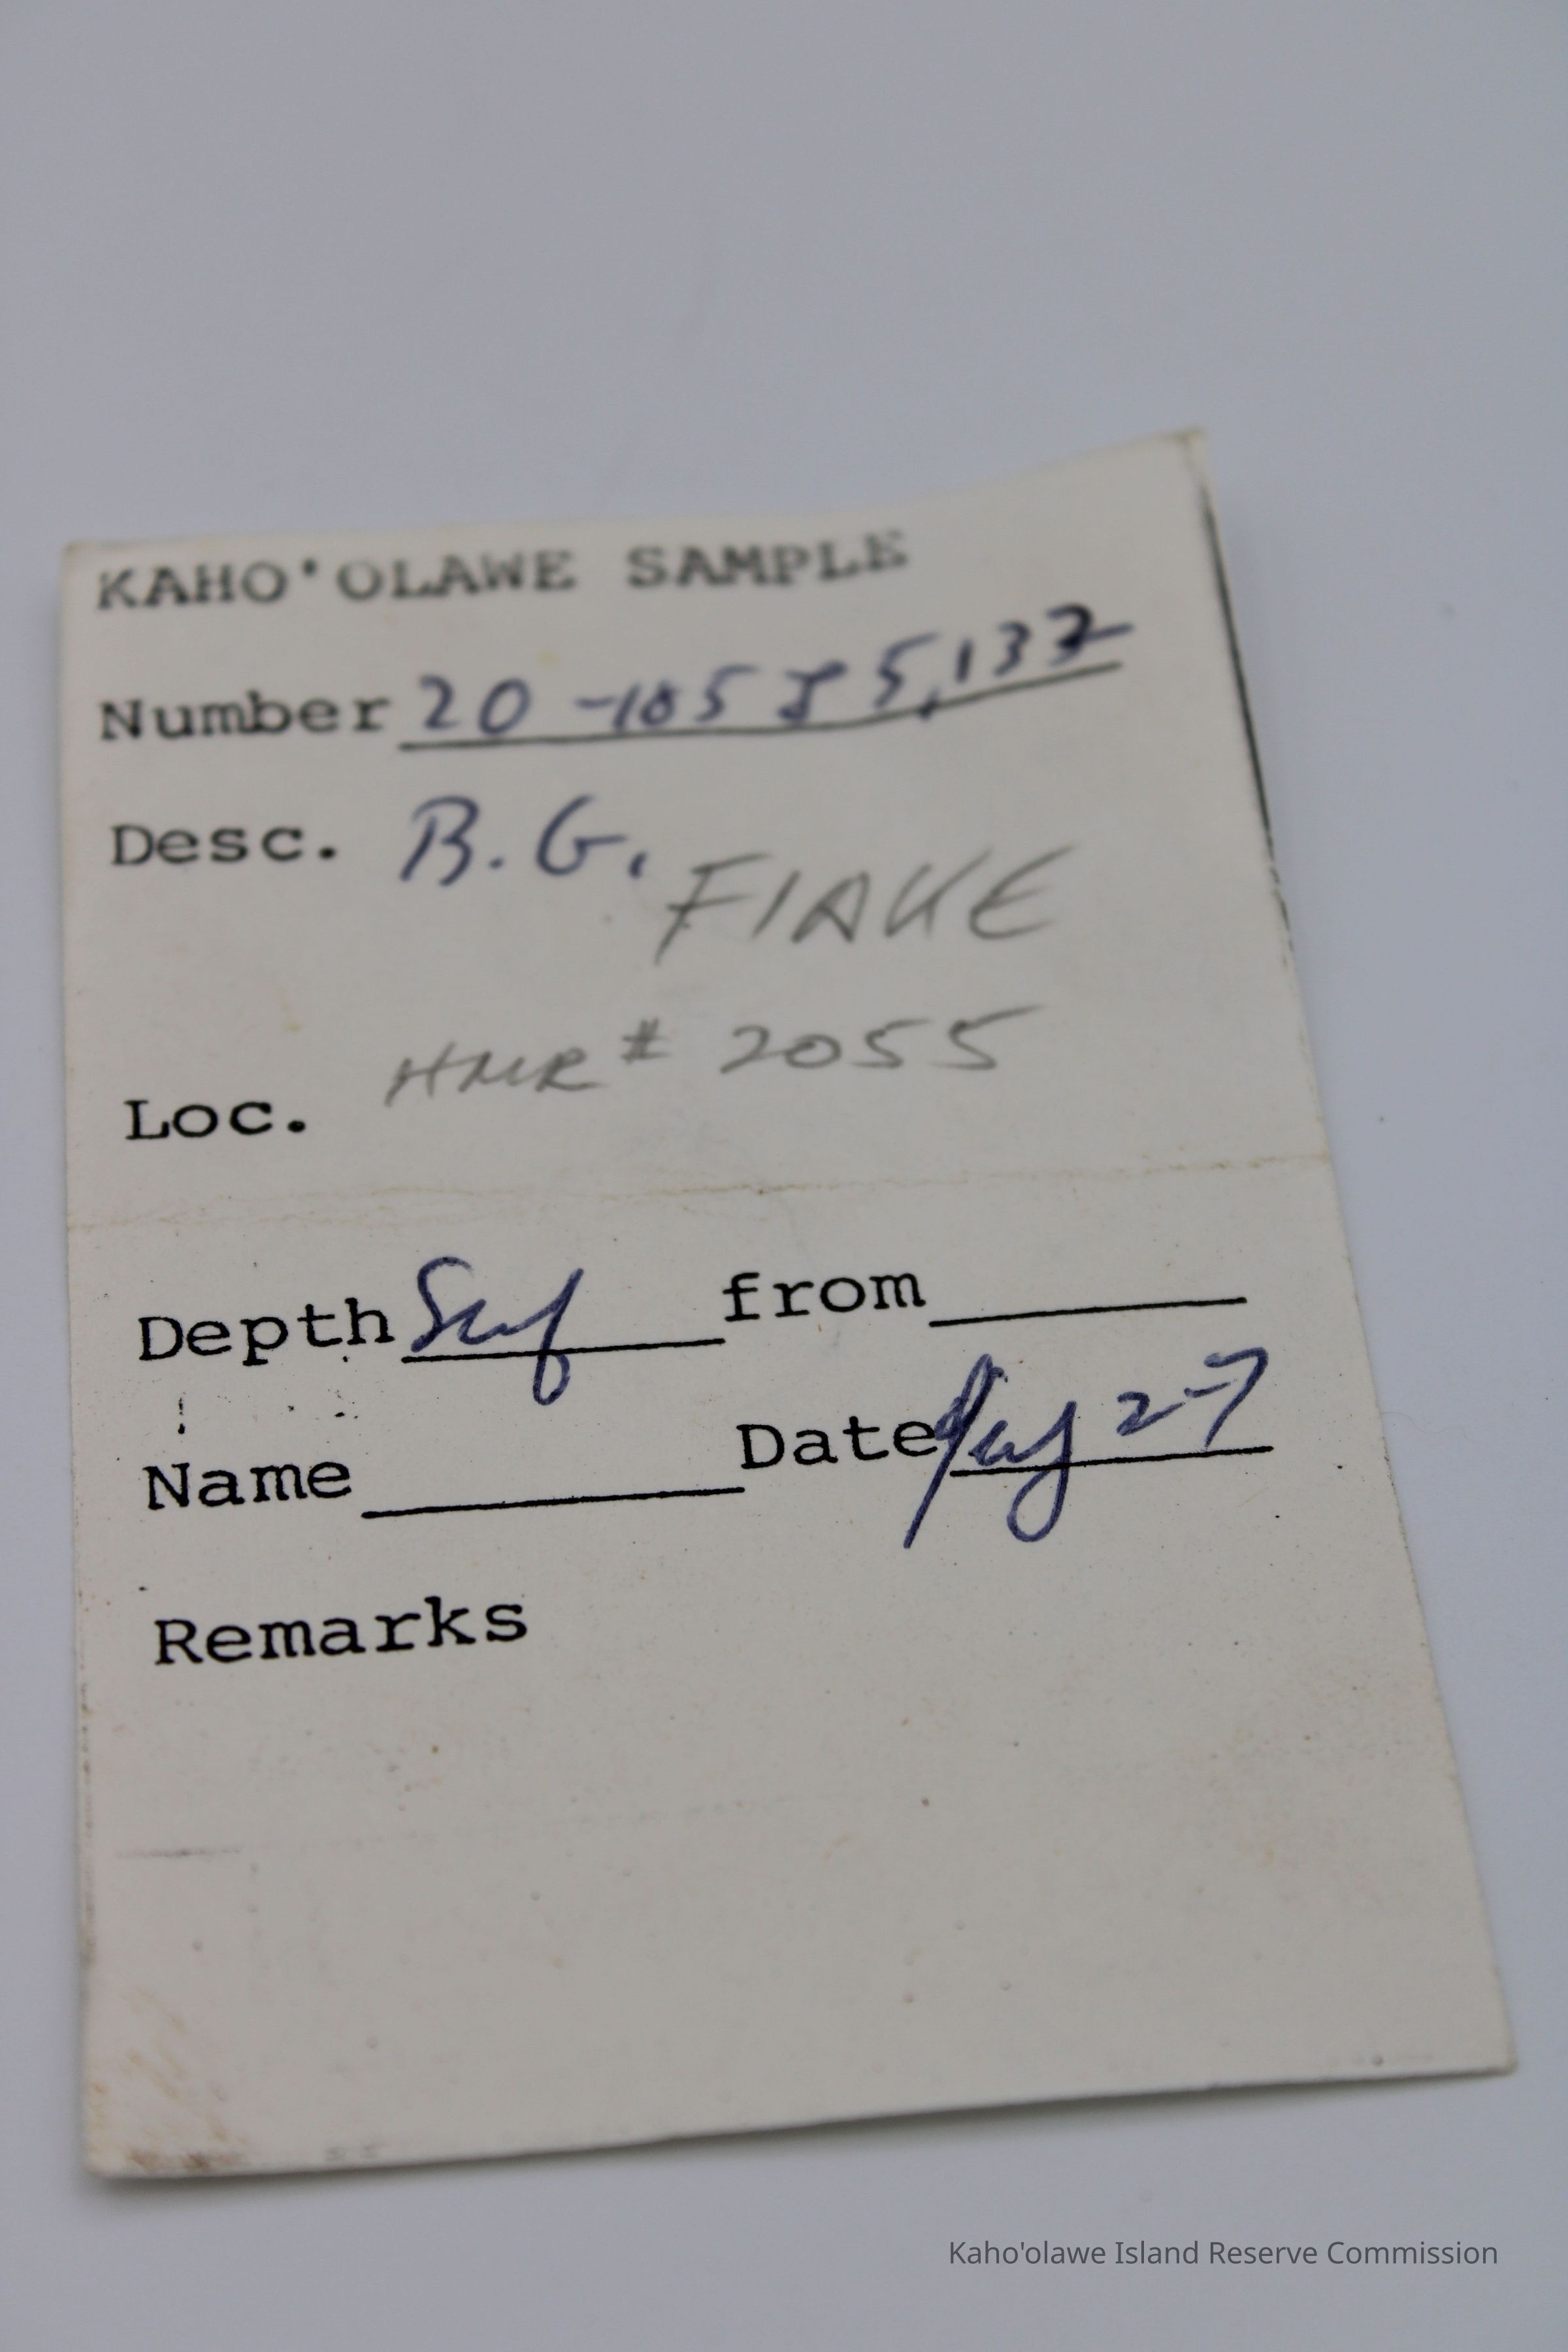 KAHO'OLAWE SAMPLE
Number 20
Desc. B.G.
FLAKE
HMR# 2055
Loc.
Depth Surf from
Name Date 27
Remarks
Kaho'olawe Island Reserve Commission